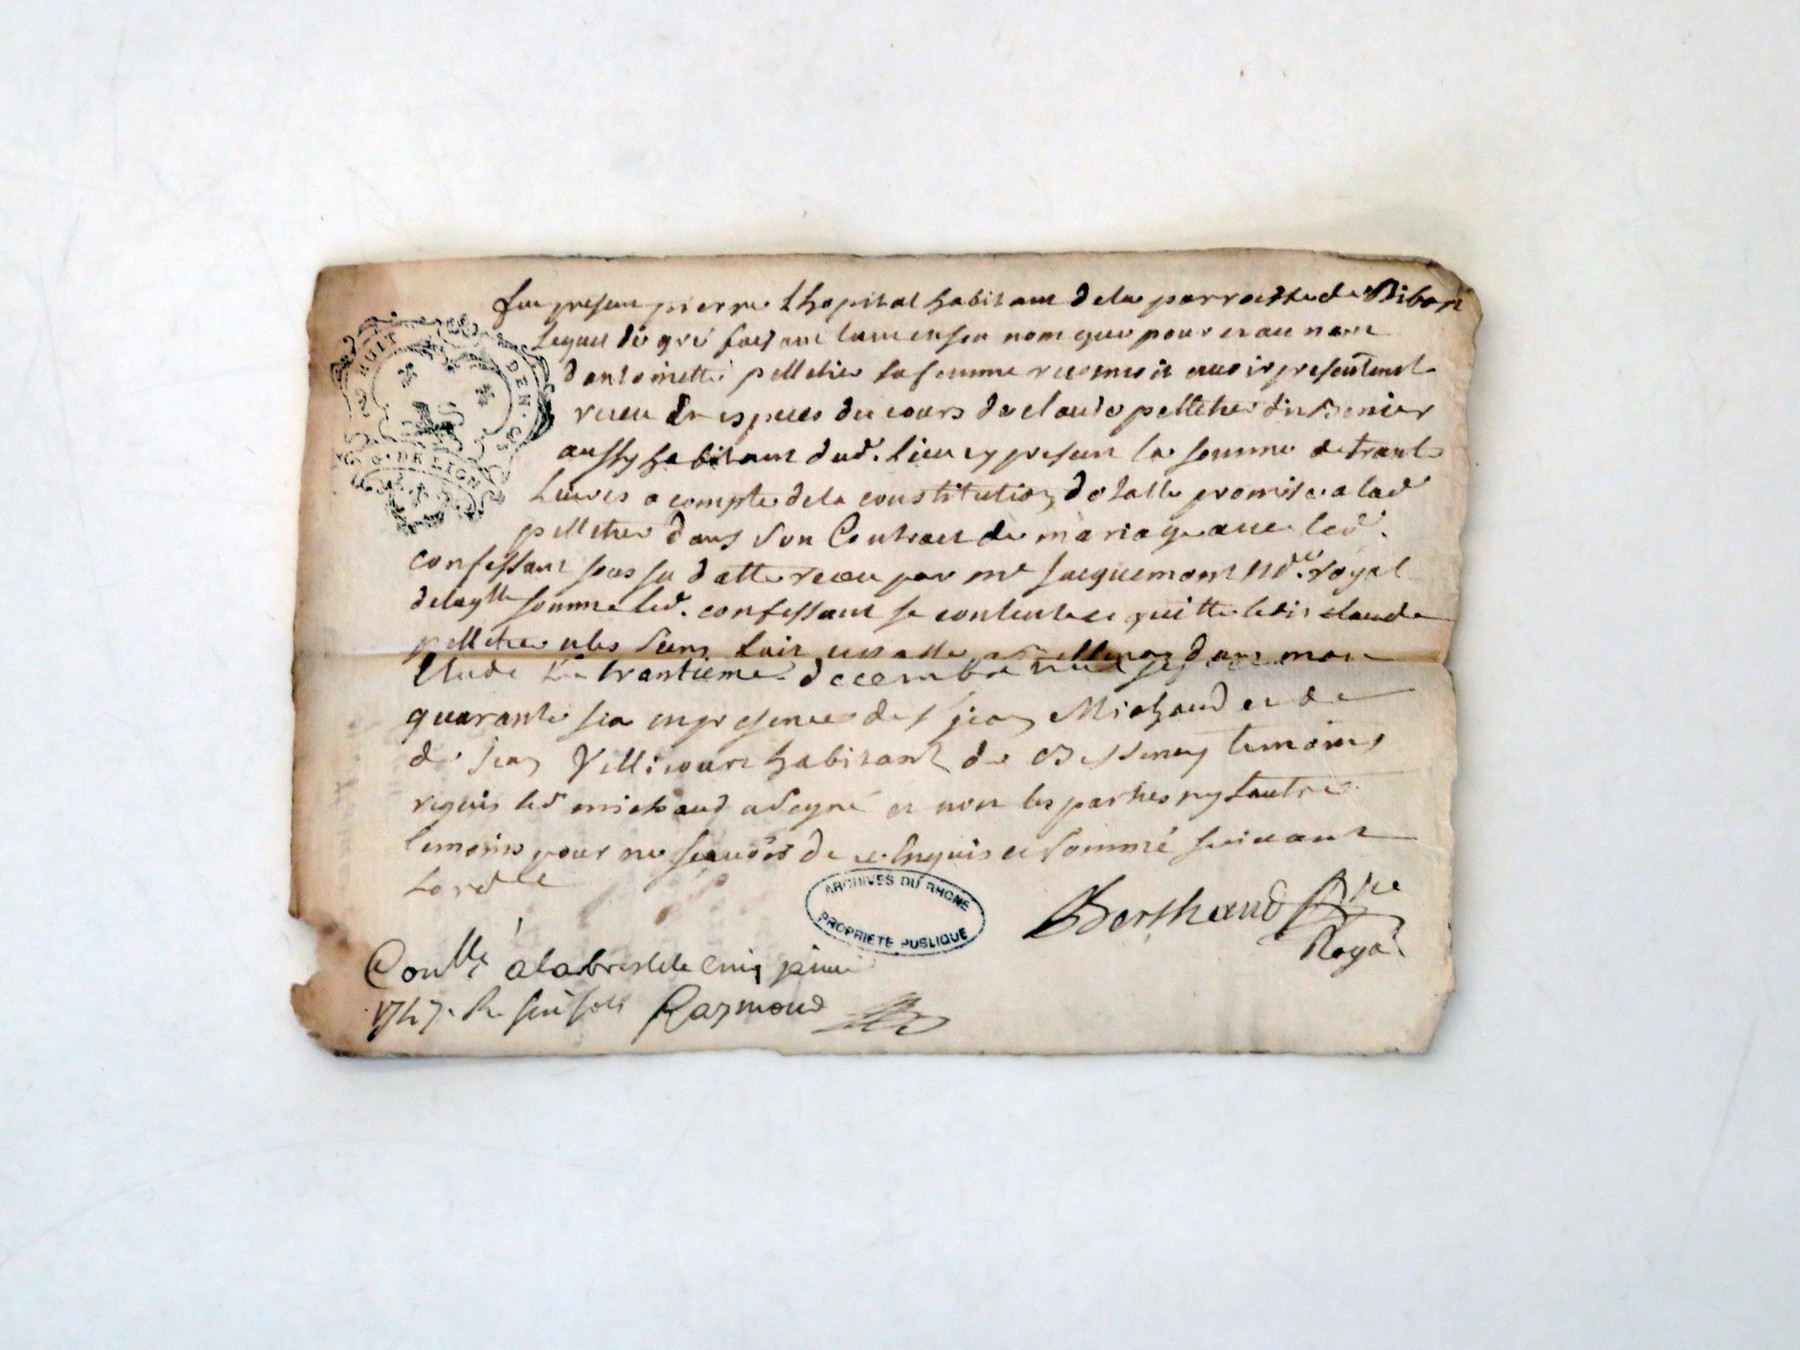 fut present pierre Lhopital habitant de la parroisse de Ribost
Lequel de gré faisant tant en son nom que pour et au nom
d'antoinette pelletier sa femme reconnoit avoir presentemt
receu en especes du cours de claude pelletier dit Benier
aussy habitant dud. lieu cy present la somme de trante
Livres a compte de la constitution dotalle promise a lad
pelletier dans son Contract de mariage avec led.
confessant sous sa datte receu par me Jacquemont nre. royal
de laqlle somme led. confessant se contente et quitte ledit claude
pelletier et les siens fait et passé dans mon
Etude Le trantieme decembre mil sept
quarante six en presence de sr jean Michaud et de
de jean Villicourt habitant de Bessenay temoins
requis led michaud a signé et non les parties ny lautre
temoins pour ne scavoir de ce Enquis et sommé suivant
Lordce
Berthaud Nre
Royal
Conllé a labresle le cinq janvier
1747. R. six sols Raymond
HUIT DEN. 
G. DE LION
ARCHIVES DU RHONE
PROPRIETE PUBLIQUE